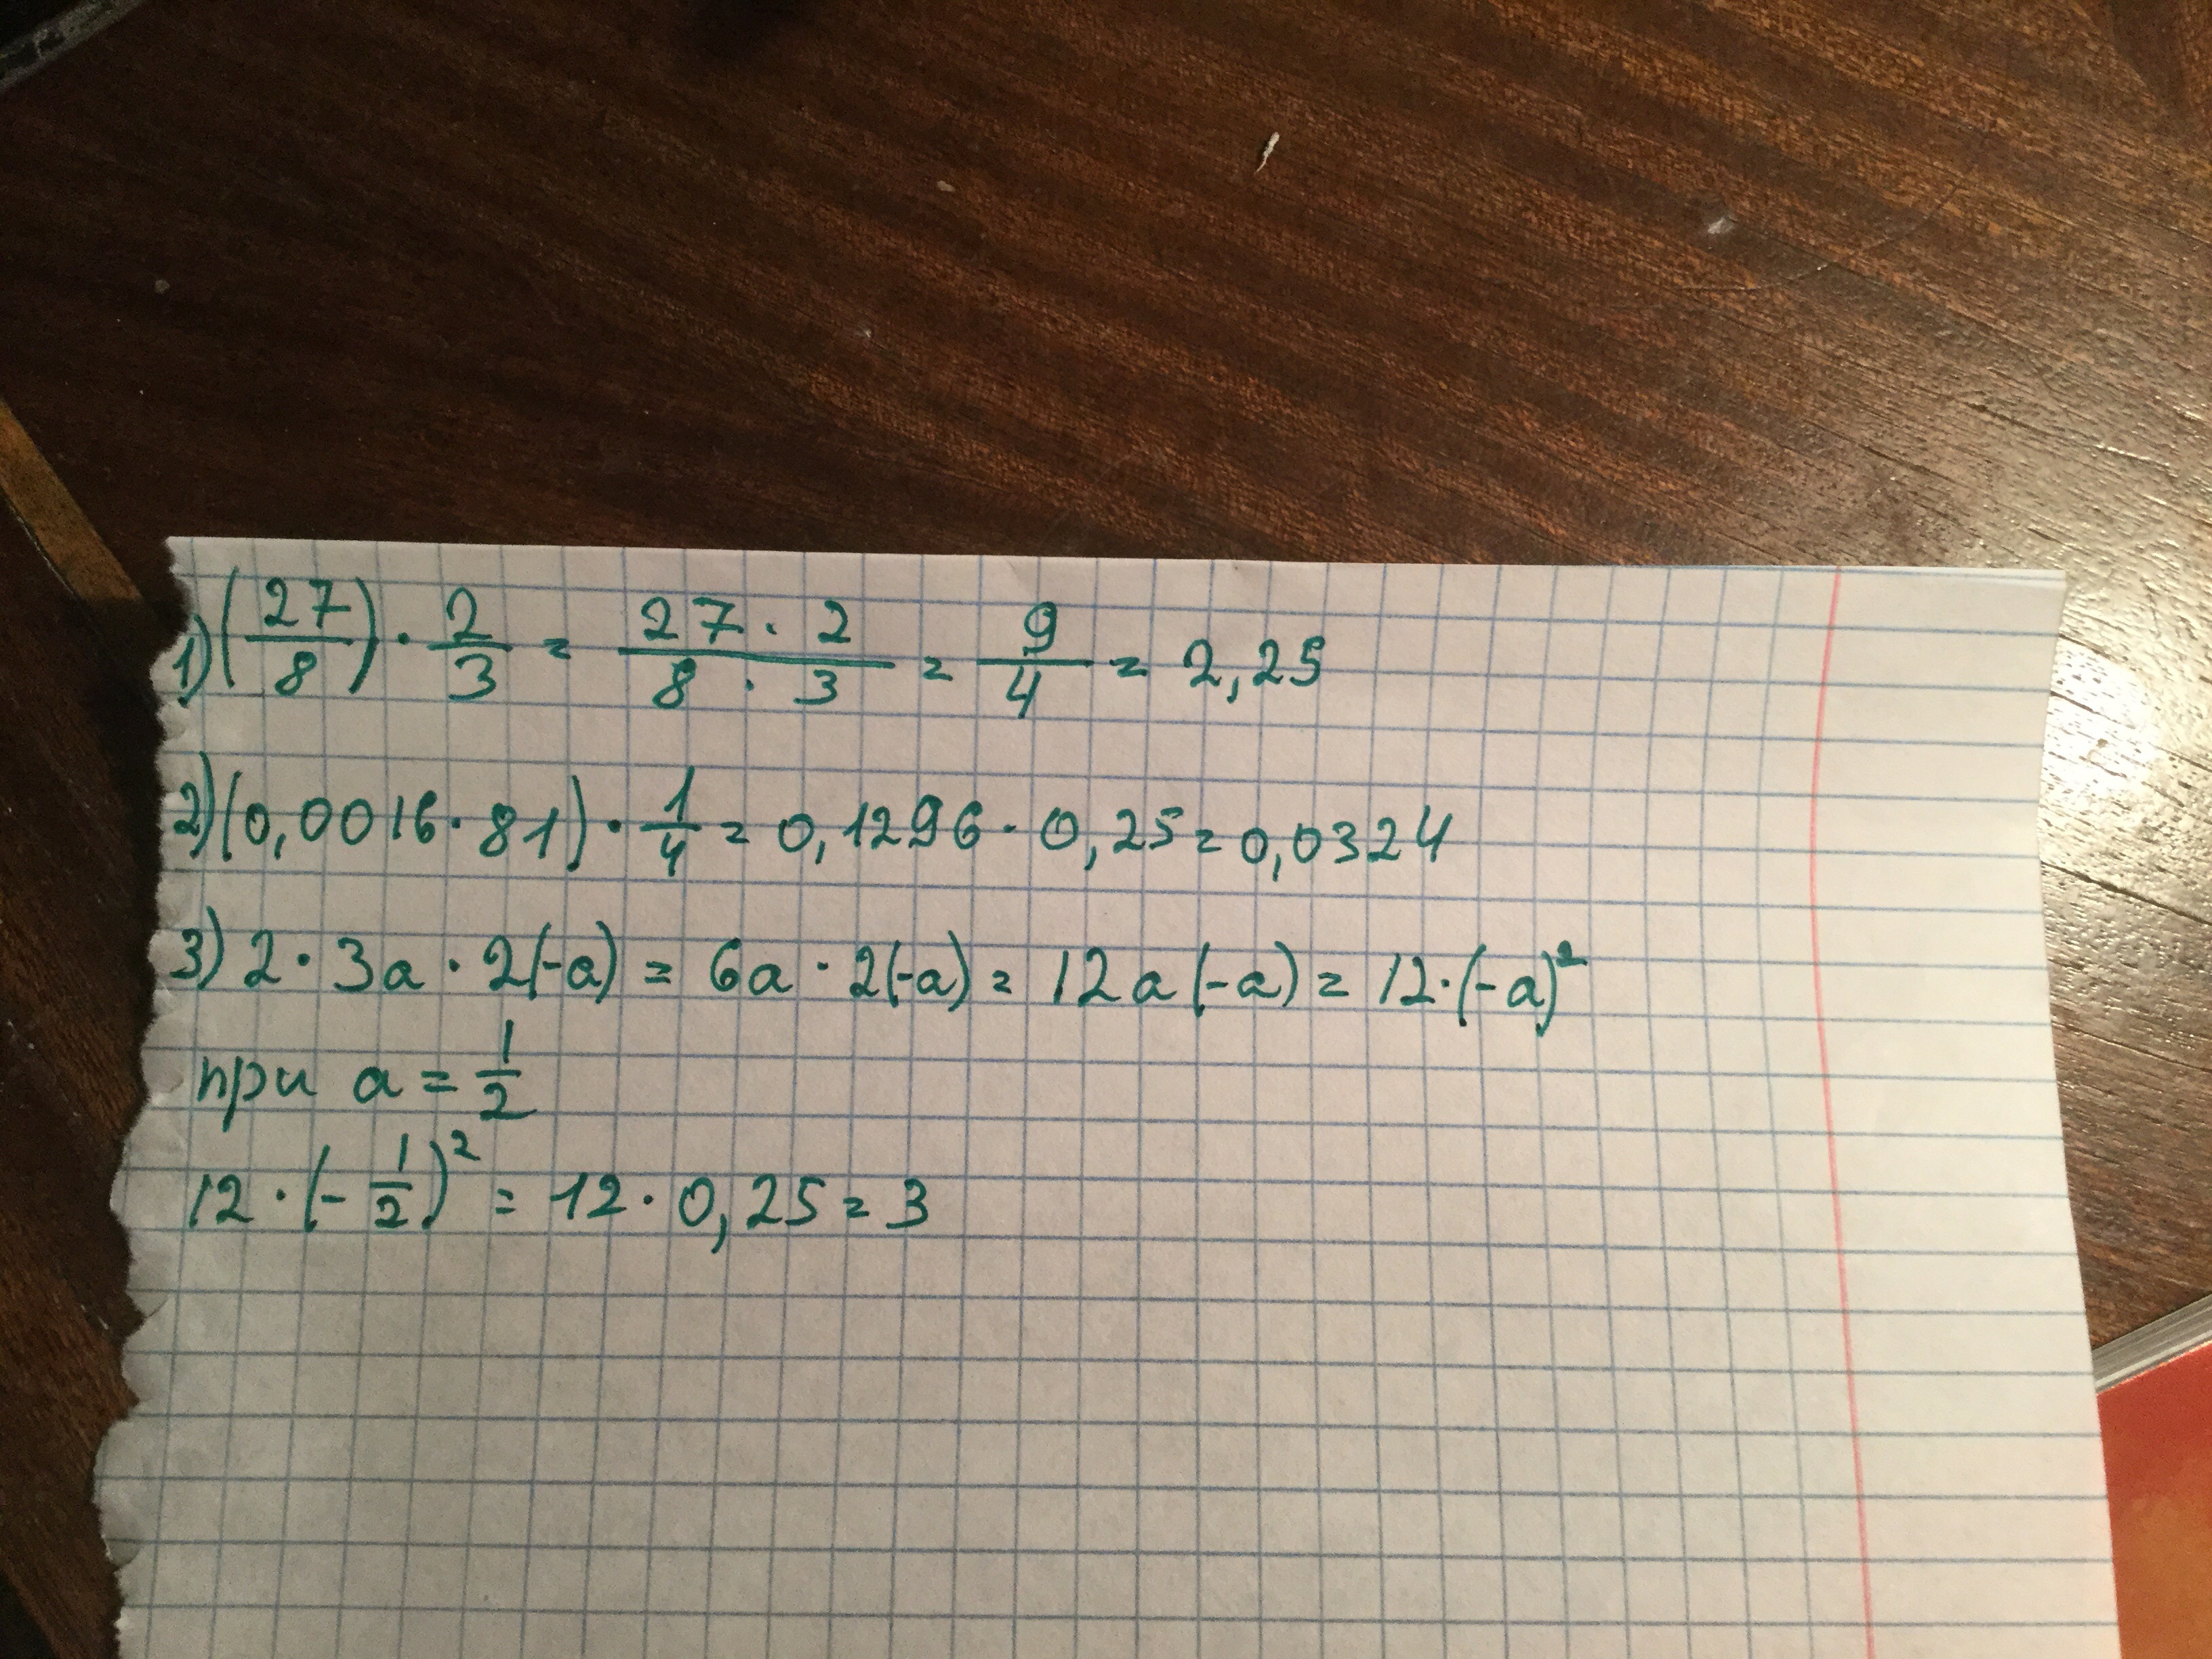 1) (27/8) · 2/3 = 27 · 2 / 8 · 3 = 9/4 = 2,25
2) (0,0016 · 81) · 1/4 = 0,1296 · 0,25 = 0,0324
3) 2 · 3a · 2(-a) = 6a · 2(-a) = 12a(-a) = 12·(-a)²
при a = 1/2
12 · (-1/2)² = 12 · 0,25 = 3